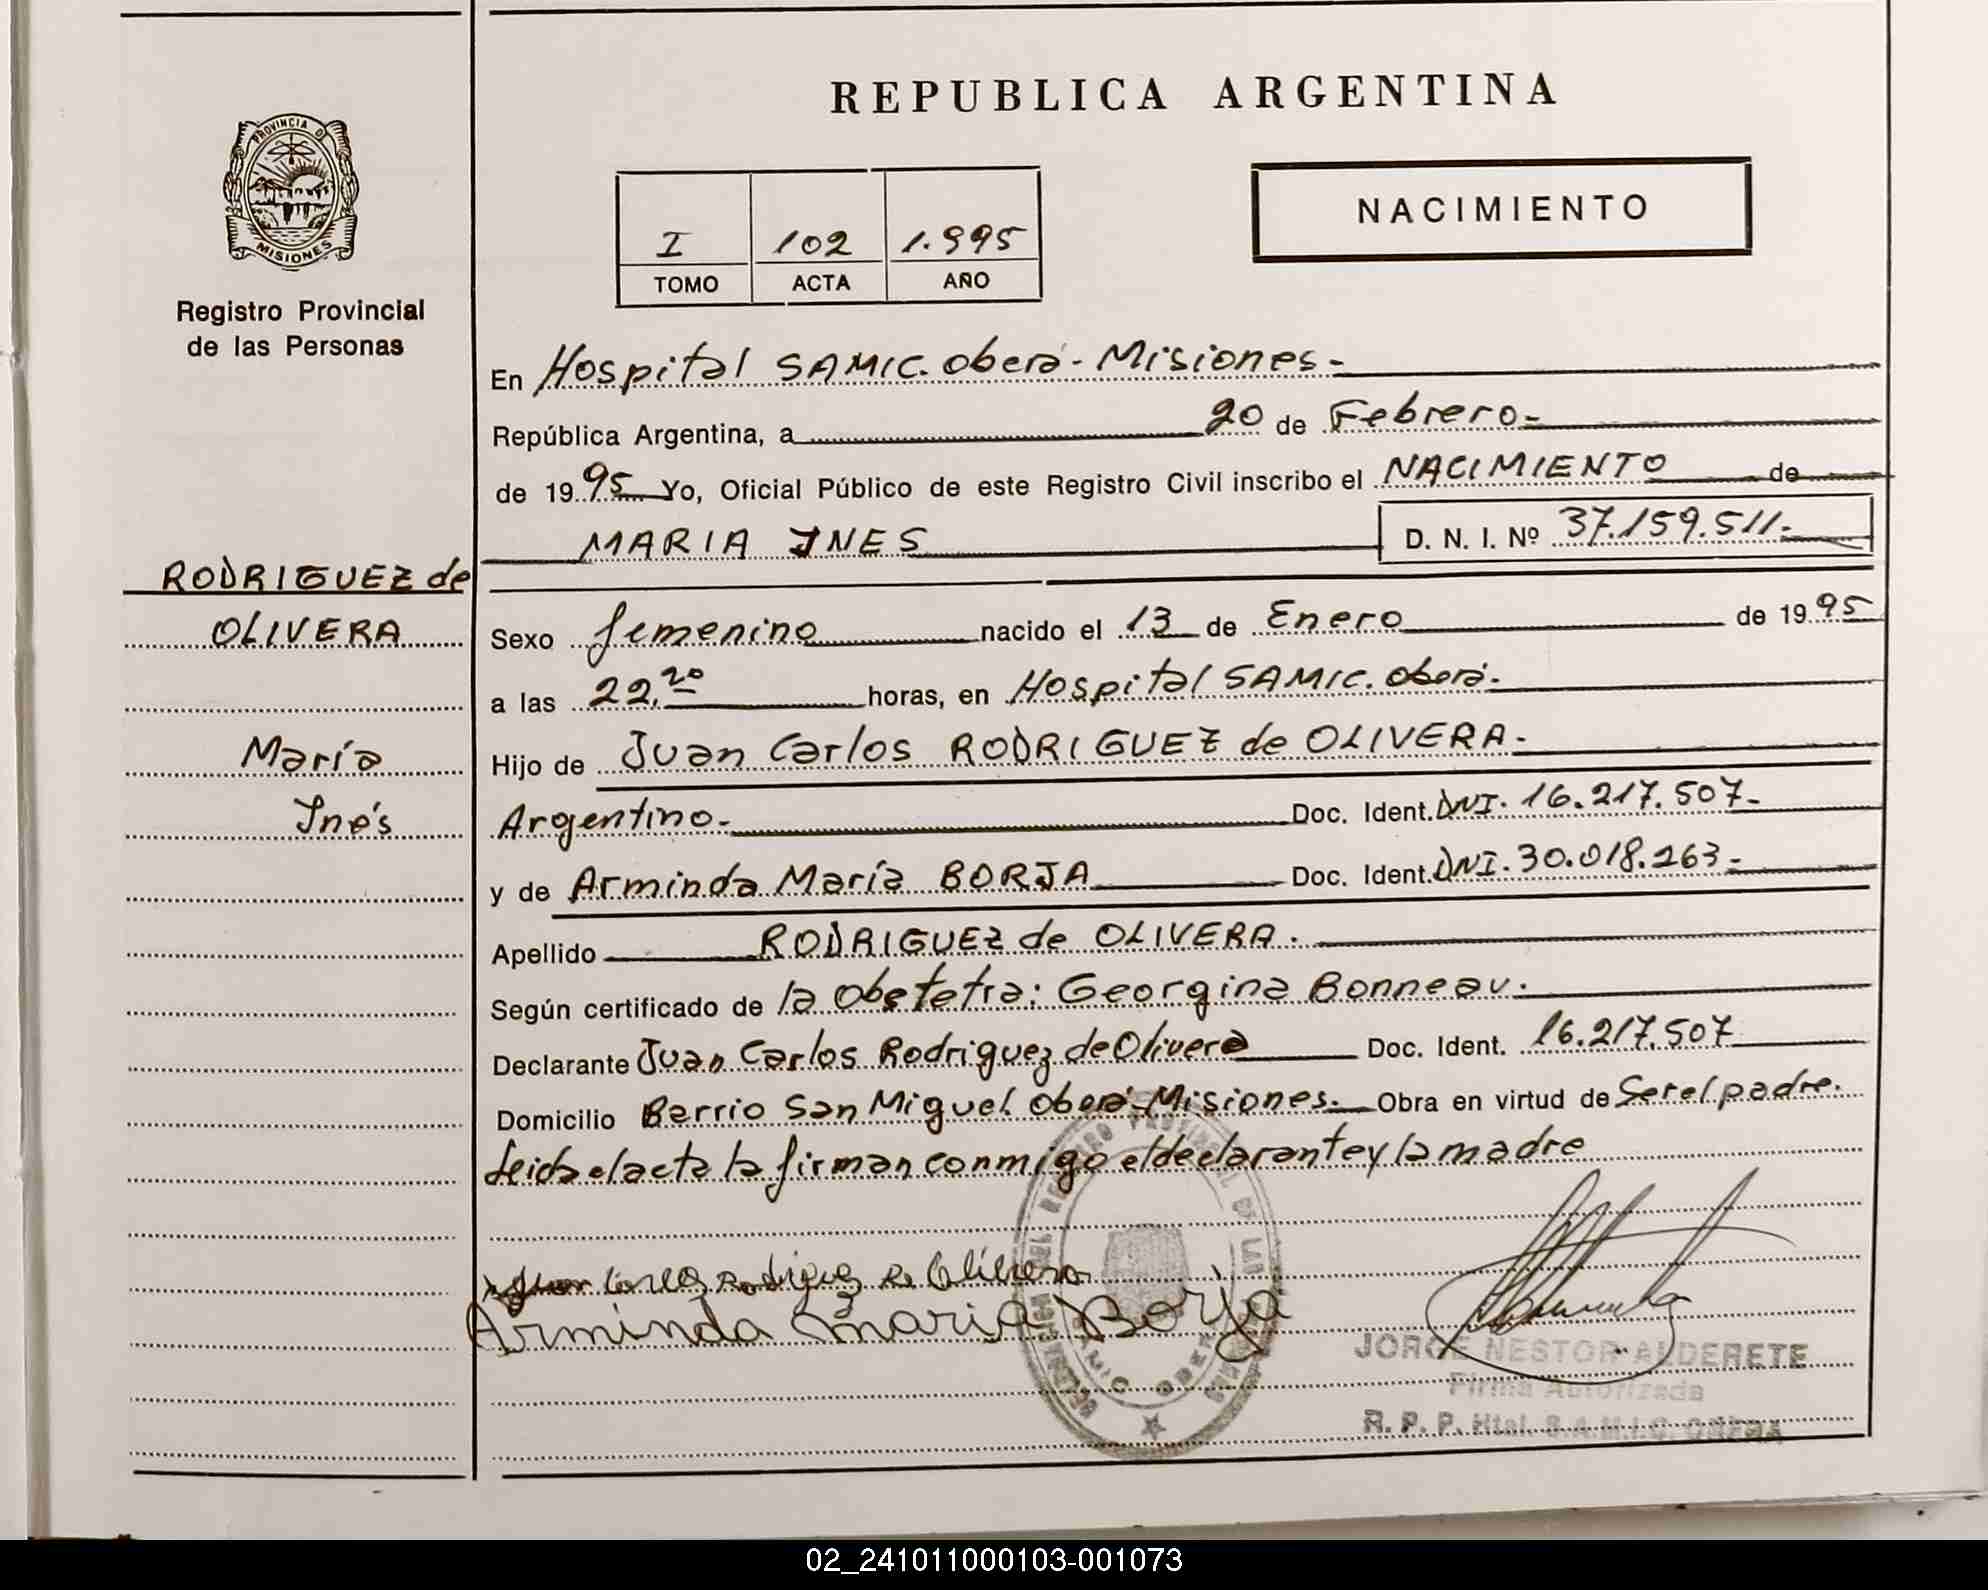 REPUBLICA ARGENTINA
PROVINCIA D
MISIONES
Registro Provincial
de las Personas
I 102 1.995
TOMO ACTA AÑO
NACIMIENTO
En Hospital SAMIC. Oberá - Misiones-
República Argentina, a 20 de Febrero-
de 1995 Yo, Oficial Público de este Registro Civil inscribo el NACIMIENTO de
MARIA INES D. N. I. Nº 37.159.511-
RODRIGUEZ de
OLIVERA
María
Inés
Sexo femenino nacido el 13 de Enero de 1995
a las 22,20 horas, en Hospital SAMIC. Oberá.
Hijo de Juan Carlos RODRIGUEZ de OLIVERA-
Argentino- Doc. Ident. DNI. 16.217.507-
y de Arminda María BORJA Doc. Ident. DNI. 30.018.263-
Apellido RODRIGUEZ de OLIVERA.
Según certificado de la Obstetra: Georgina Bonneau.
Declarante Juan Carlos Rodriguez de Olivera Doc. Ident. 16.217.507
Domicilio Barrio San Miguel Oberá-Misiones. Obra en virtud de Ser el padre.
Leida el acta la firman conmigo el declarante y la madre
Juan Carlos Rodriguez De Olivera
Arminda Maria Borja
JORGE NESTOR ALDERETE
Firma Autorizada
R. P. P. Htal. S.A.M.I.C. OBERA
02_241011000103-001073